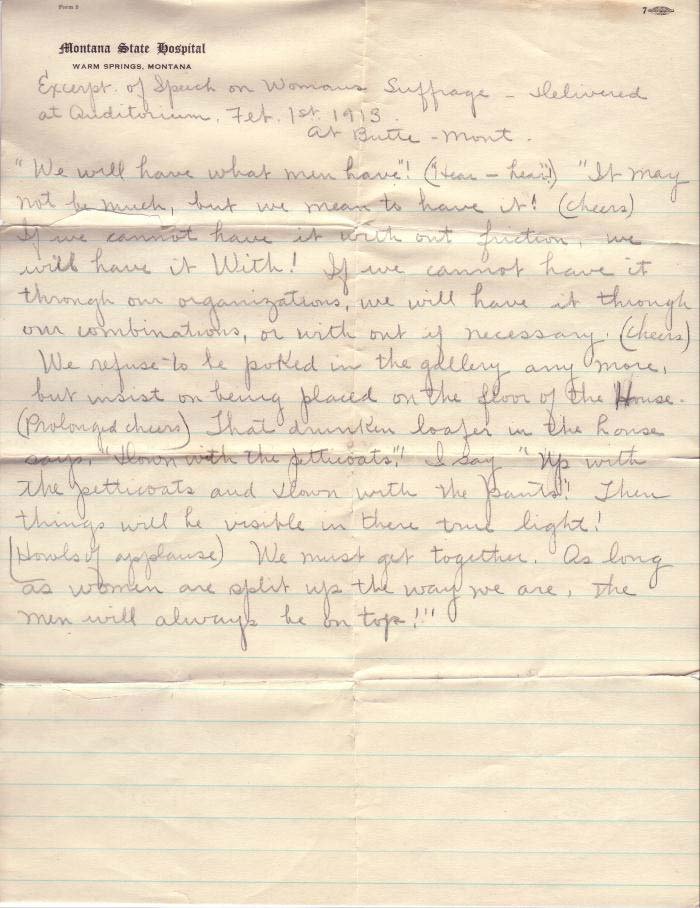 Form 5
7
Montana State Hospital
WARM SPRINGS, MONTANA
Excerpt. of Speech on Womans Suffrage - Delivered
at Auditorium, Feb. 1st. 1913.
At Butte - Mont.
"We will have what men have"! ("Hear - hear"!) "It may
not be much, but we mean to have it! (cheers)
If we cannot have it with out friction, we
will have it With! If we cannot have it
through our organizations, we will have it through
our combinations, or with out if necessary. (cheers)
We refuse to be poked in the gallery any more,
but insist on being placed on the floor of the House.
(Prolonged cheers) That drunken loafer in the house
says, "Down with the petticoats"! I say "Up with
the petticoats and down with the pants"! Then
things will be visible in there true light!
(Howls of applause) We must get together. As long
as women are split up the way we are, the
men will always be on top!"